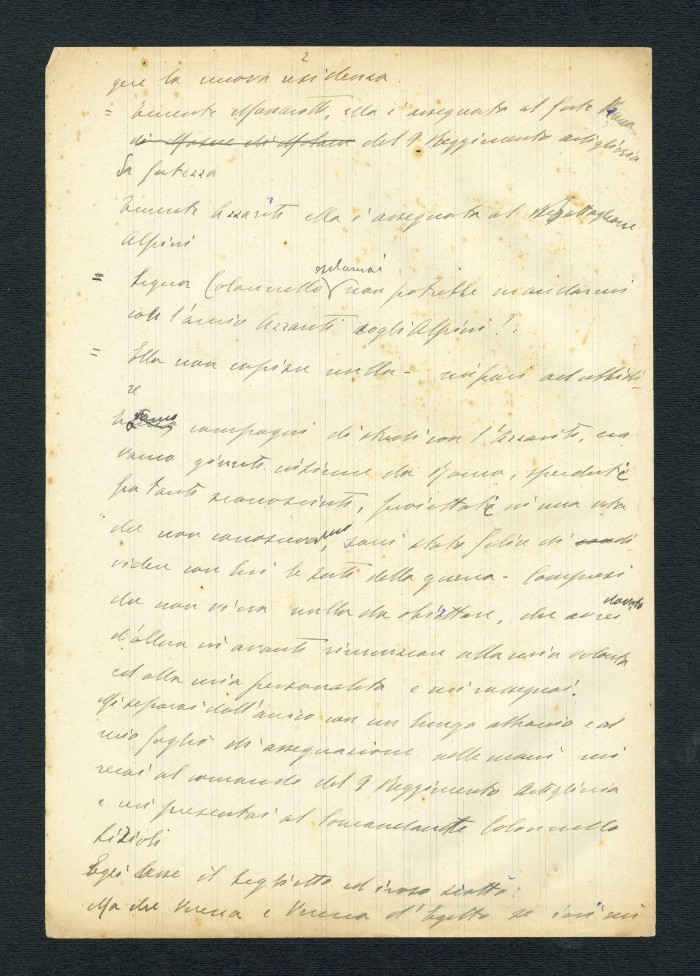 2
gere la nuova residenza.
= Tenente Massarotti, ella è assegnato al forte
del 9 Reggimento artiglieria
da fortezza
Tenente Azzariti ella è assegnato al Battaglione
Alpini
= Signor Colonnello, esclamai non potrebbe mandarmi
con l'amico Azzariti negli Alpini?
= Ella non capisce nulla - impari ad ubbidi-
re
compagni di studi con l'Azzariti, era
vamo giunti insieme da Roma, sperduti
fra tanti sconosciuti, proiettati in una vita
che non conoscevamo, sarei stato felice di
videre con lui le sorti della guerra - Compresi
che non vi era nulla da obiettare, che avrei dovuto
d'allora in avanti rinunziare alla mia volontà
ed alla mia personalità e mi rassegnai.
Mi separai dall'amico con un lungo abbraccio e col
mio foglio di assegnazione nelle mani mi
recai al comando del 9 Reggimento Artiglieria
e mi presentai al Comandante Colonnello
Egli lesse il biglietto ed iroso scattò:
Ma che Verena e Verena d'Egitto se